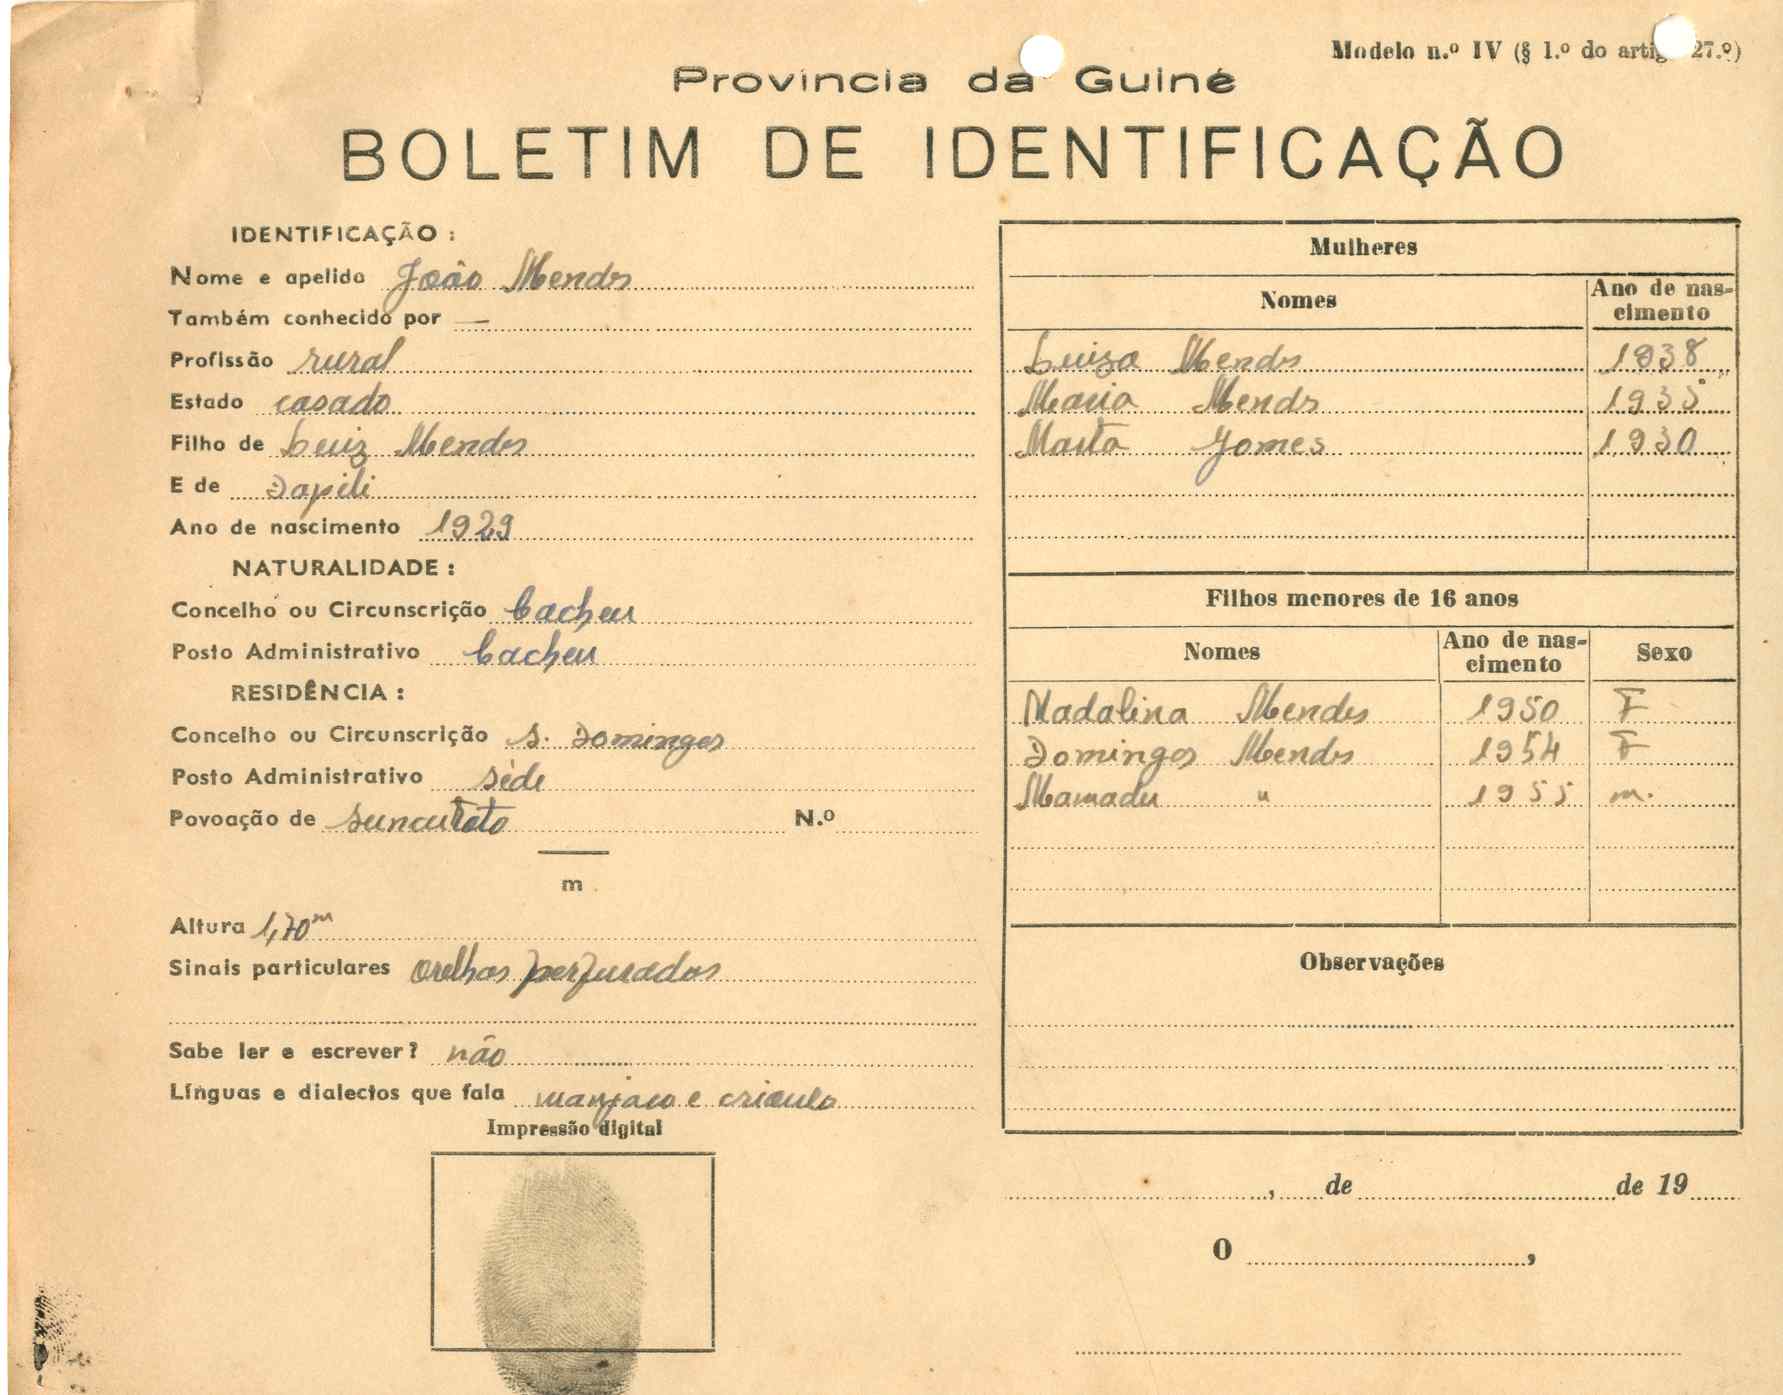 Modelo n.º IV (§ 1.º do artig 27.º)
Província da Guiné
BOLETIM DE IDENTIFICAÇÃO
IDENTIFICAÇÃO :
Nome e apelido João Mendes
Também conhecido por —
Profissão rural
Estado casado
Filho de Luiz Mendes
E de Dapili
Ano de nascimento 1929
NATURALIDADE :
Concelho ou Circunscrição Cacheu
Posto Administrativo Cacheu
RESIDÊNCIA :
Concelho ou Circunscrição S. Domingos
Posto Administrativo Séde
Povoação de Suncutoto N.º
m
Altura 1,70 m
Sinais particulares orelhas perfuradas
Sabe ler e escrever? não
Línguas e dialectos que fala manjaco e crioulo
Impressão digital
Mulheres
Nomes
Ano de nas-
cimento
Luiza Mendes 1938
Maria Mendes 1935
Marta Gomes 1930
Filhos menores de 16 anos
Nomes
Ano de nas-
cimento
Sexo
Madalina Mendes 1950 F
Domingos Mendes 1954 F
Mamadu " 1955 m.
Observações
, de de 19
O ,